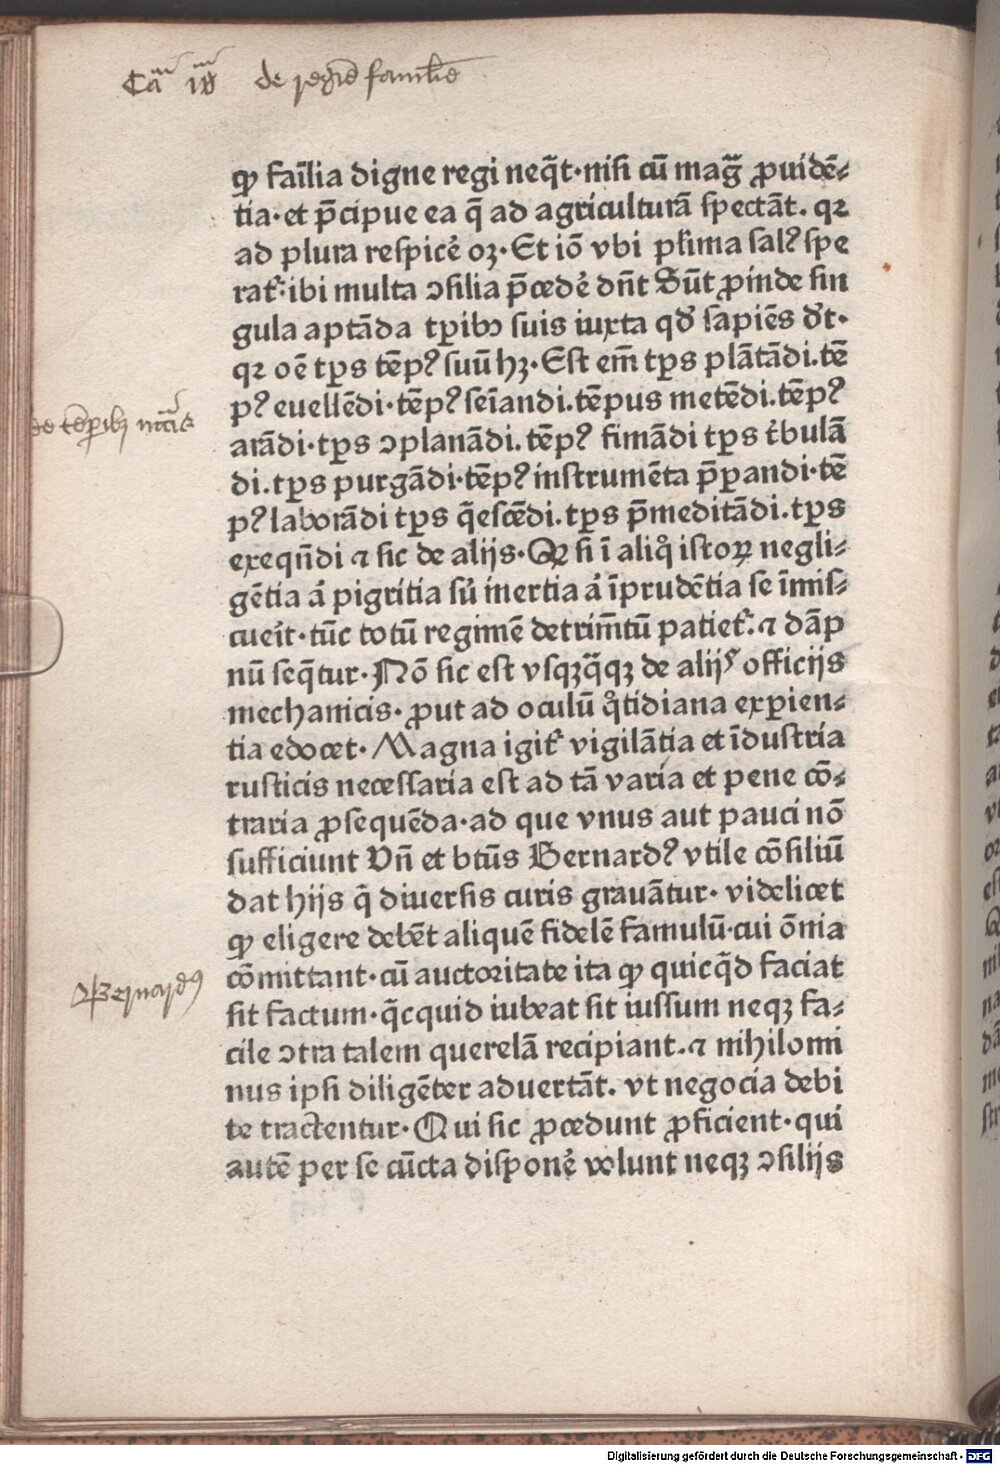 Caᵐ iiiᵐ de regīe familie
ꝙ fai̅lia digne regi neq̄t·nisi cū mag̃ ꝓuidē⸗
tia·et p̄cipue ea q̄ ad agriculturā spectāt. qꝛ
ad plura respicẻ oꝫ·Et iō vbi pl̉ima salꝰ spe
rat̉·ibi multa ↄsilia p̄cedẻ dn̄t Sūt ꝓinde sin
gula aptāda tꝑibꝰ suis iuxta qḋ sapiēs ḋt·
qꝛ oē tꝑs tēpꝰ suū hꝫ·Est em̄ tꝑs plātādi.tē
pꝰ euellēdi·tēpꝰ sei̅andi.tēpus metēdi.tēpꝰ
arādi·tꝑs ↄplanādi.tēpꝰ fimādi tꝑs t̉bulā
di.tꝑs purgādi·tēpꝰ instrumēta p̄ꝑandi·tē
pꝰ laborādi tꝑs q̄escēdi.tꝑs p̄meditādi.tꝑs
exeqn̄di ⁊ sic de alijs·Qꝛ si ī aliqͦ istoꝝ negli⸗
gētia ả pigritia sủ inertia ả īprudētia se īmis⸗
cueit̉·tūc totū regimē detrim̄tū patiet̉·⁊ dāp
nū seq̄tur·Nō sic est vsqꝫq̄qꝫ de alijꝰ officijs
mechanicis·ꝓut ad oculū qͦtidiana exꝑien⸗
tia edocet·Magna igit̉ vigilātia et īdustria
rusticis necessaria est ad tā varia et pene cō⸗
traria ꝓsequēda·ad que vnus aut pauci nō
sufficiunt Vn̄ et btūs Bernardꝰ vtile cōsiliū
dat hijs q̄ diuersis curis grauātur·videlicet
ꝙ eligere debēt aliquē fidelē famulū·cui ōnia
cōmittant·cū auctoritate ita ꝙ quicq̄d faciat
sit factum·q̄cquid iubeat sit iussum neqꝫ fa⸗
cile ↄtra talem querelā recipiant.⁊ nihilomi
nus ipsi diligēter aduertāt. vt negocia debi
te tractentur·Qui sic ꝓcedunt ꝓficient·qui
autē per se cūcta disponẻ volunt neqꝫ ↄsilijs
de tēꝑibꝫ
Bernardꝰ
Digitalisierung gefördert durch die Deutsche Forschungsgemeinschaft - DFG